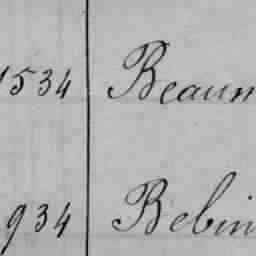 1534 Beaum
934 Bebin